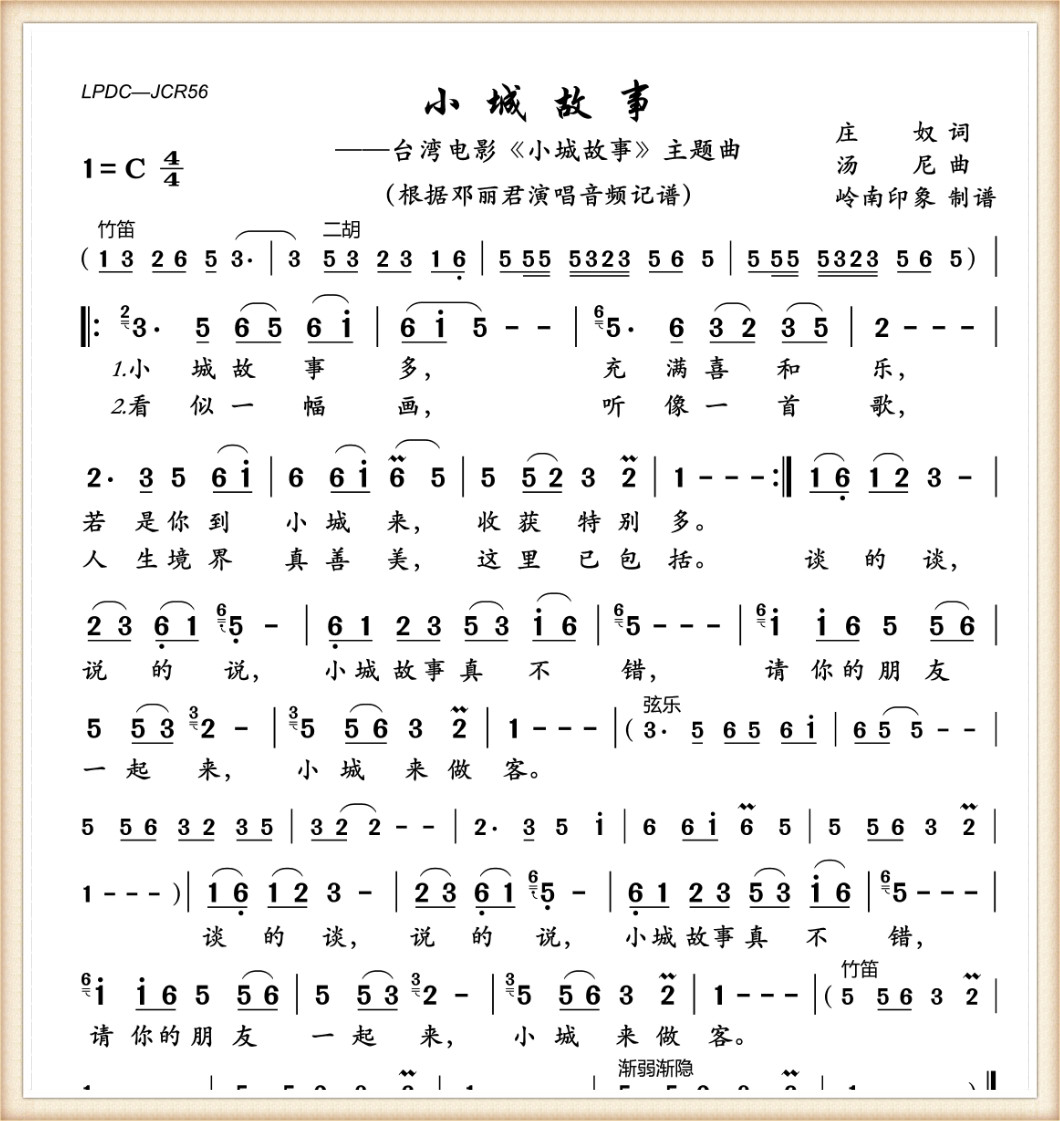 LPDC—JCR56
小城故事
——台湾电影《小城故事》主题曲
(根据邓丽君演唱音频记谱)
庄 奴 词
汤 尼 曲
岭南印象 制谱
1=C 4/4
竹笛 二胡
( 1 3 2 6 5 3· | 3 5 3 2 3 1 6 | 5 55 5323 5 6 5 | 5 55 5323 5 6 5 ) |
‖: 2 3· 5 6 5 6 i | 6 i 5 - - | 6 5· 6 3 2 3 5 | 2 - - - |
1.小 城 故 事 多, 充 满 喜 和 乐,
2.看 似 一 幅 画, 听 像 一 首 歌,
2· 3 5 6 i | 6 6 i 6 5 | 5 5 2 3 2 | 1 - - - :‖ 1 6 1 2 3 - |
若 是 你 到 小 城 来, 收 获 特 别 多。
人 生 境 界 真 善 美, 这 里 已 包 括。 谈 的 谈,
2 3 6 1 6 5 - | 6 1 2 3 5 3 i 6 | 6 5 - - - | 6 i i 6 5 5 6 |
说 的 说, 小 城 故 事 真 不 错, 请 你 的 朋 友
弦乐
5 5 3 3 2 - | 3 5 5 6 3 2 | 1 - - - | ( 3· 5 6 5 6 i | 6 5 5 - - |
一 起 来, 小 城 来 做 客。
5 5 6 3 2 3 5 | 3 2 2 - - | 2· 3 5 i | 6 6 i 6 5 | 5 5 6 3 2 |
1 - - - ) | 1 6 1 2 3 - | 2 3 6 1 6 5 - | 6 1 2 3 5 3 i 6 | 6 5 - - - |
谈 的 谈, 说 的 说, 小 城 故 事 真 不 错,
竹笛
6 i i 6 5 5 6 | 5 5 3 3 2 - | 3 5 5 6 3 2 | 1 - - - | ( 5 5 6 3 2 |
请 你 的 朋 友 一 起 来, 小 城 来 做 客。
渐弱渐隐